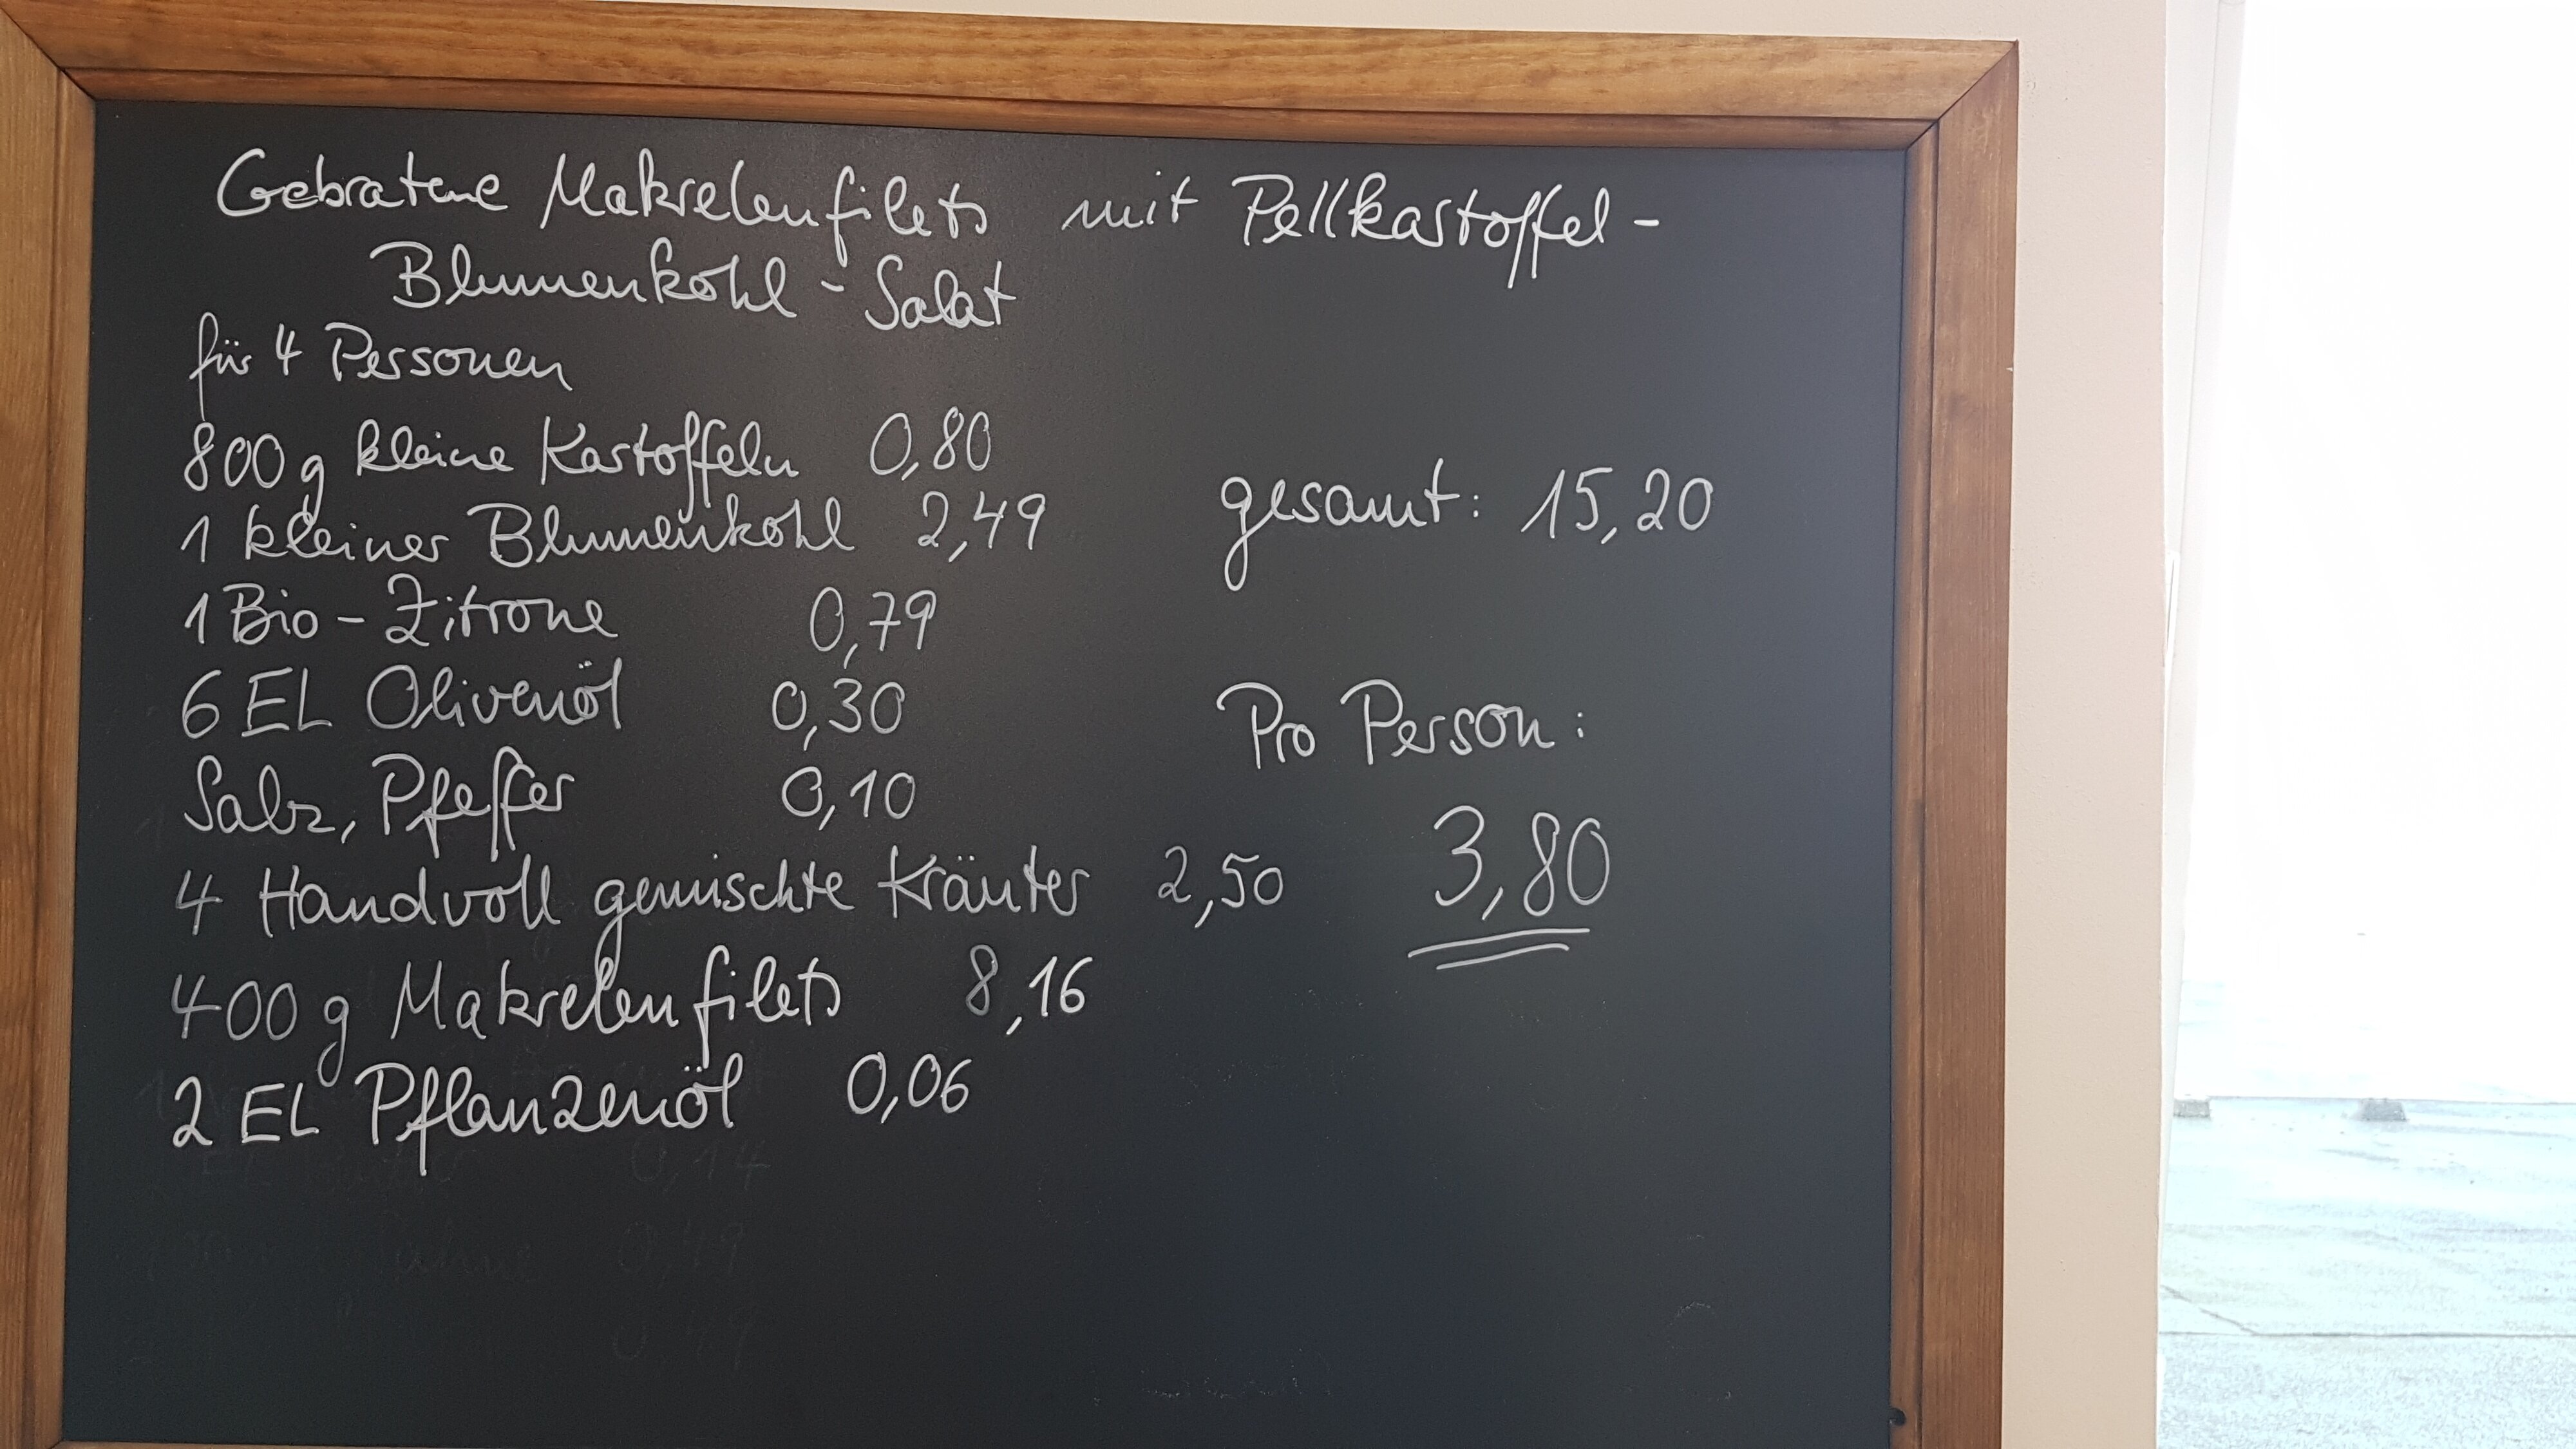 Gebratene Makrelenfilets mit Pellkartoffel-
Blumenkohl-Salat
für 4 Personen
800g kleine Kartoffeln 0,80
1 kleiner Blumenkohl 2,49
1 Bio-Zitrone 0,79
6 EL Olivenöl 0,30
Salz, Pfeffer 0,10
4 Handvoll gemischte Kräuter 2,50
400g Makrelenfilets 8,16
2 EL Pflanzenöl 0,06
gesamt: 15,20
Pro Person:
3,80